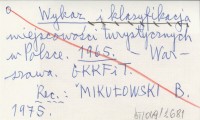 Wykaz i klasyfikacja
miejscowości turystycznych
w Polsce. 1965. - War-
szawa. GKKFiT.
Rec.: MIKUŁOWSKI B.
1975.